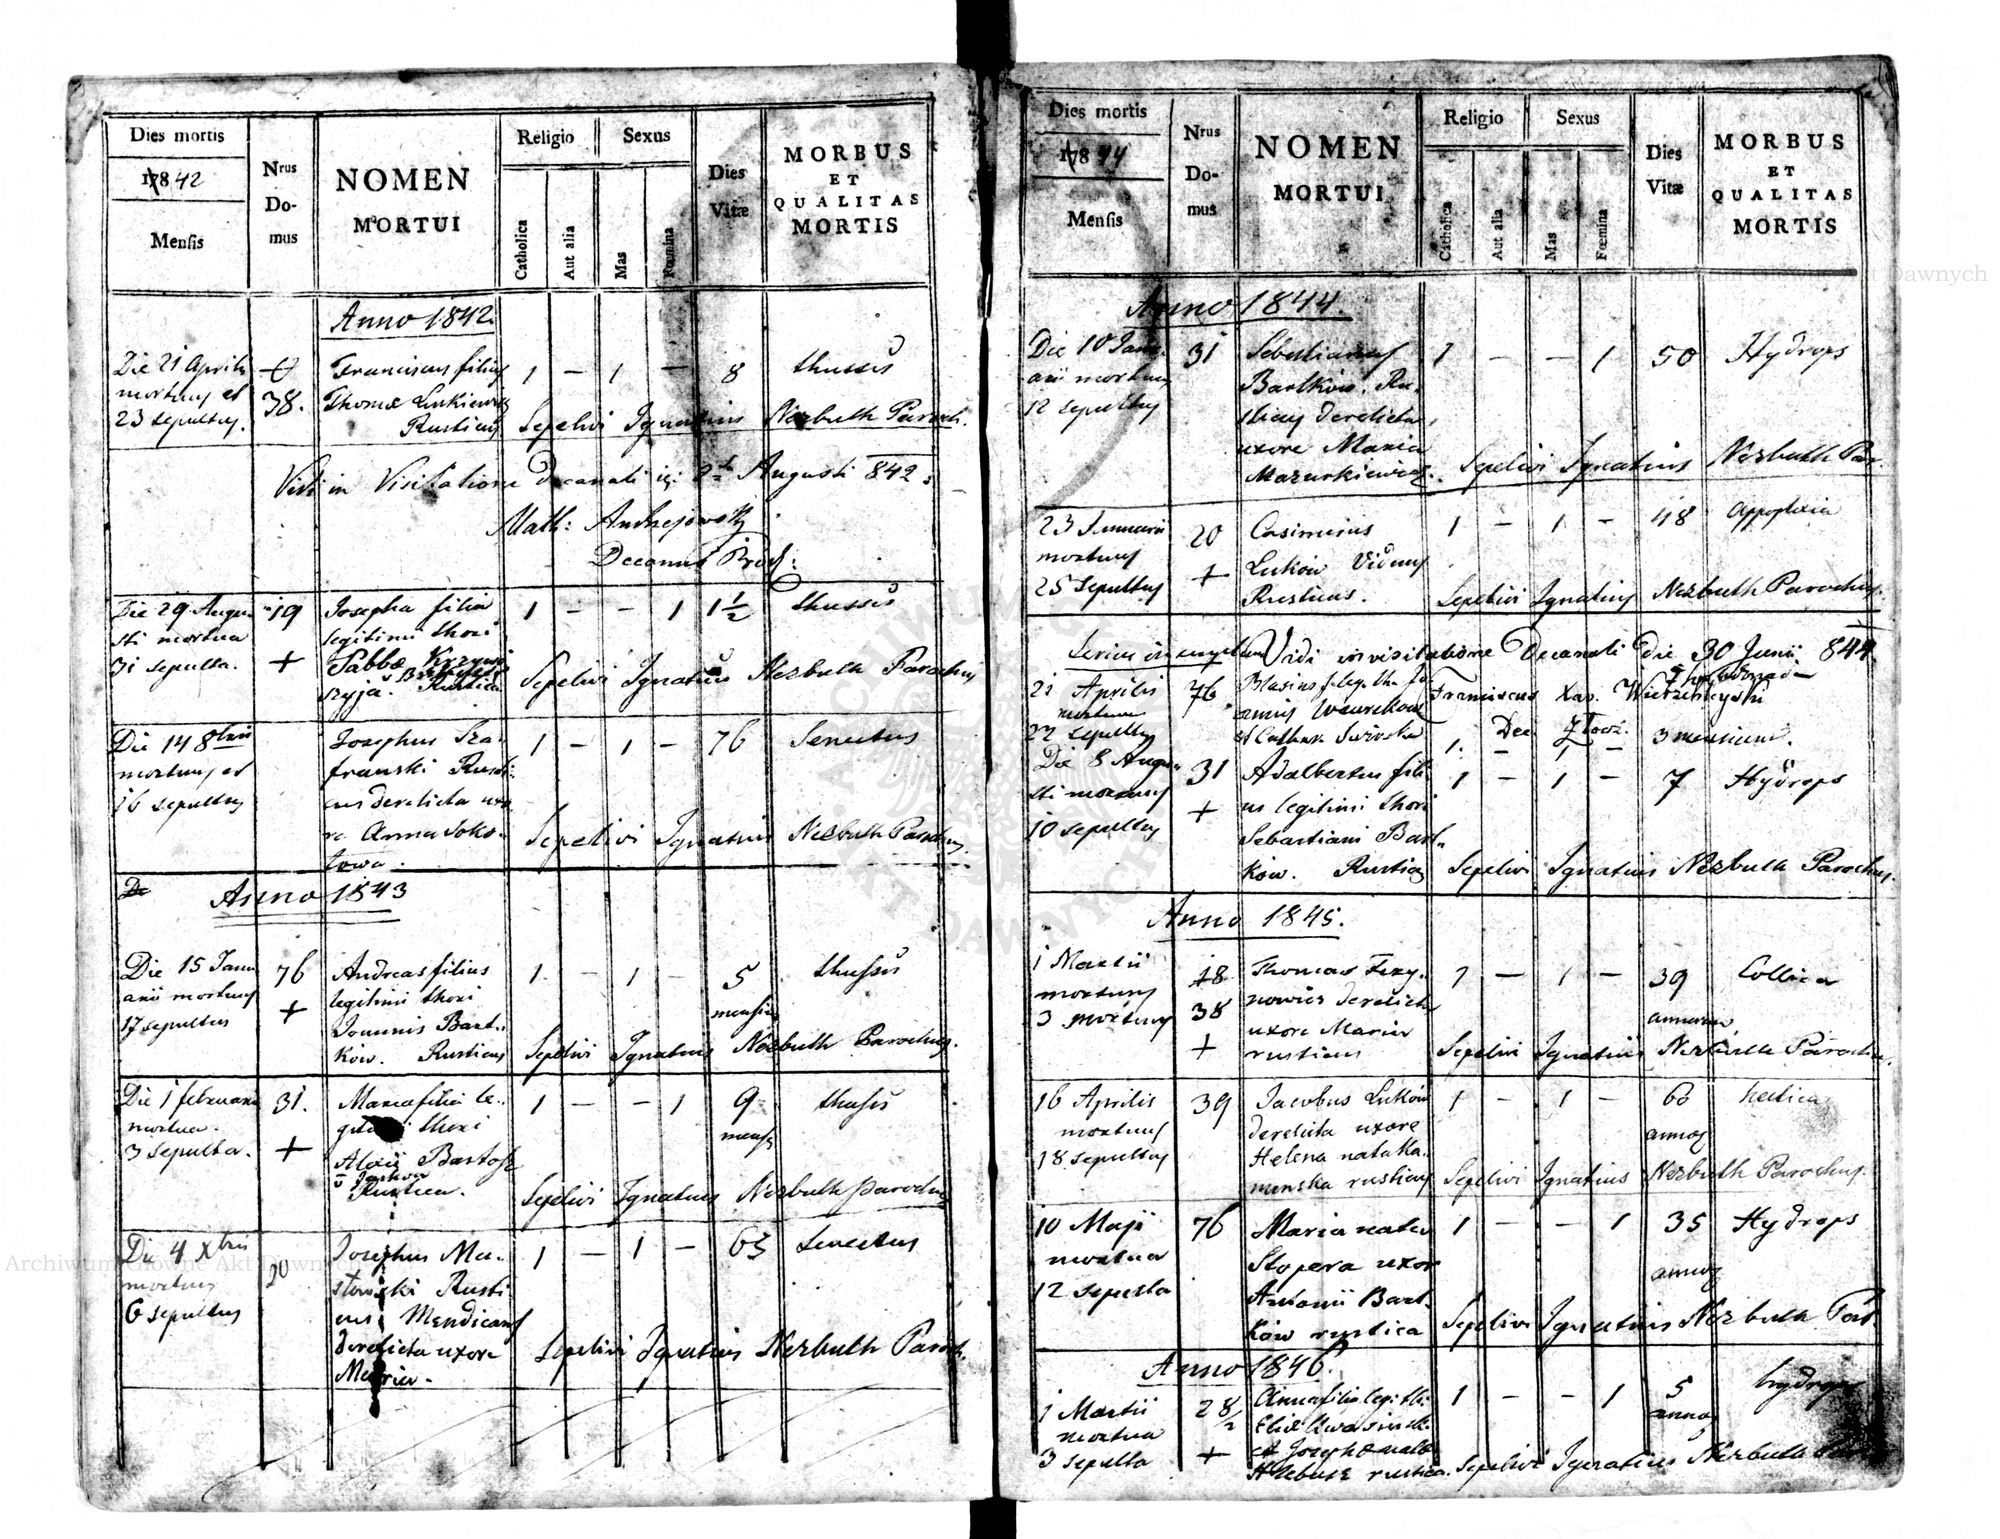 Dies mortis
17842
Mensis
Nrus
Do-
mus
NOMEN
MORTUI
Religio
Sexus
Catholica
Aut alia
Mas
Fœmina
Dies
Vitæ
MORBUS
ET
QUALITAS
MORTIS
Anno 1842
Die 21 Aprilis
mortuus et
23 sepultus.
38.
Franciscus filius
Thomæ Lukiewicz
Rusticus
1 — 1 — 8 thussis
Sepelivi Ignatius Nezbuth Paroch.
Vidi in Visitatione Decanali Augusti 842
Math: Andrzejowski
Decanus Brod:
Die 29 Augu-
sti mortua
31 sepulta.
19
+
Josepha filia
legitimi thori
Sabbæ
Rustica
1 — — 1 1½ thussis
Sepelivi Ignatius Nezbuth Parochus
Die 14 8bris
mortuus et
16 sepultus
Josephus Sza-
franski Rusti-
cus derelicta uxo-
re Anna Soko-
lowa.
1 — 1 — 76 Senectus
Sepelivi Ignatius Nezbuth Parochus.
Anno 1843
Die 15 Janu
arii mortuus
17 sepultus
76
+
Andreas filius
legitimi thori
Joannis Bart-
ków. Rusticus
1 — 1 — 5 thussis
mensium
Sepelivi Ignatius Nezbuth Parochus.
Die 1 februarii
mortua.
3 sepulta.
31.
+
Maria filia le-
thori
Rustica.
1 — — 1 9 thussis
mens
Sepelivi Ignatius Nezbuth Parochus
Die 4 Xbris
mortuus
6 sepultus
20
Josephus Ma-
Rusti
cus Mendicans
derelicta uxore
Maria.
1 — 1 — 63 Senectus
Sepelivi Ignatius Nezbuth Paroch.
Dies mortis
17844
Mensis
Nrus
Do-
mus
NOMEN
MORTUI
Religio
Sexus
Catholica
Aut alia
Mas
Fœmina
Dies
Vitæ
MORBUS
ET
QUALITAS
MORTIS
Anno 1844.
Die 10 Janu-
arii mortuus
12 sepultus
31
Sebastianus
Bartków. Ru-
sticus derelicta
uxore Maria
Mazurkiewicz.
1 — — 1 50 Hydrops
Sepelivi Ignatius Nezbuth Par.
23 Januarii
mortuus
25 sepultus
20
+
Casimirus
Luków Viduus
Rusticus.
1 — 1 — 48 Appoplexia
Sepelivi Ignatius Nezbuth Parochus.
Vidi in visitatione Decanali Die 30 Junii 844
21 Aprilis
mortuus
22 sepultus
76
Franciscus Xav.
Dec. Złocz.
1. — 1 — 3 mensium.
Die 8 Augu-
sti mortuus
10 sepultus
31
+
Adalbertus fili-
us legitimi thori
Sebastiani Bart-
ków. Rusticus
1 — 1 — 7 Hydrops
Sepelivi Ignatius Nezbuth Parochus.
Anno 1845.
1 Martii
mortuus
3 mortuus
18
38
+
Thomas
derelicta
uxore Maria
rusticus
1 — 1 — 39 Collica
annorum
Sepelivi Ignatius Nezbuth Parochus.
16 Aprilis
mortuus
18 sepultus
39
Jacobus Luków
derelicta uxore
Helena nata Ka-
menska rusticus
1 — 1 — 60 hectica
annos
Sepelivi Ignatius Nezbuth Parochus.
10 Maji
mortua
12 sepulta
76
Maria nata
Stopera uxor
Antonii Bart-
ków rustica
1 — — 1 35 Hydrops
annos
Sepelivi Ignatius Nezbuth Par.
Anno 1846.
1 Martii
mortua
3 sepulta
28/2
+
Anna filia leg: thi
et Josephæ natæ
rustica.
1 — — 1 5 hydrops
annos
Sepelivi Ignatius Nezbuth
Archiwum Główne Akt Dawnych
Archiwum Główne Akt Dawnych
ARCHIWUM GŁÓWNE AKT DAWNYCH